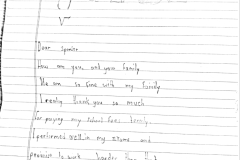 Dear Sponsor
How are you, and your family
We are so fine with my family
I really thank you so much
for paying my school fees termly
I performed well in my exams and
promise to work harder than that